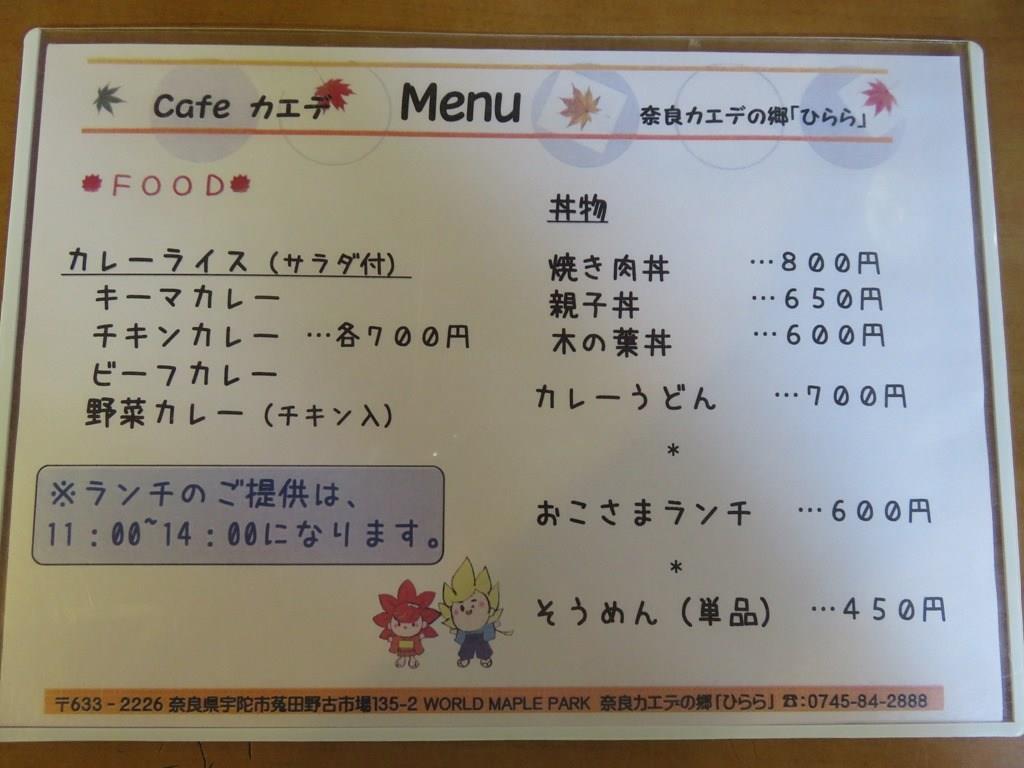 Cafe カエデ Menu 奈良カエデの郷「ひらら」
FOOD
カレーライス（サラダ付）
キーマカレー
チキンカレー …各７００円
ビーフカレー
野菜カレー（チキン入）
※ランチのご提供は、
11：00~14：00になります。
丼物
焼き肉丼 …８００円
親子丼 …６５０円
木の葉丼 …６００円
カレーうどん …７００円
*
おこさまランチ …６００円
*
そうめん（単品） …４５０円
〒633－2226 奈良県宇陀市菟田野古市場135-2 WORLD MAPLE PARK 奈良カエデの郷「ひらら」 ☎:0745-84-2888